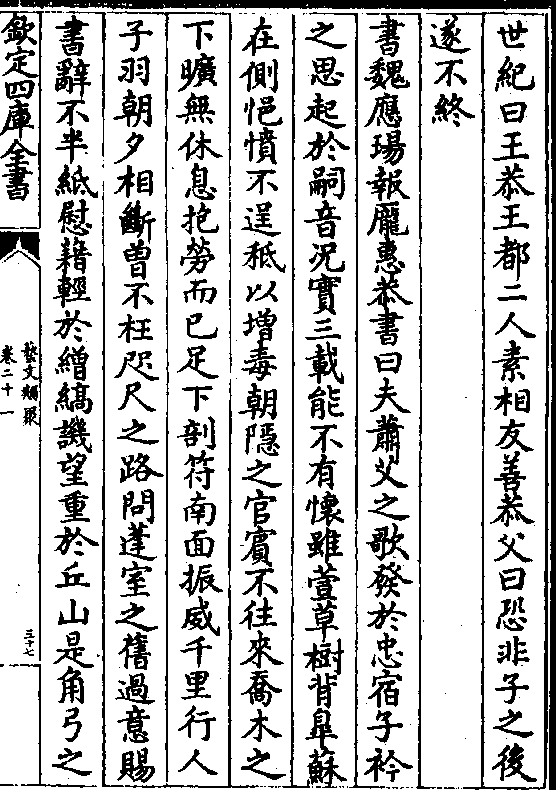 世紀曰王恭王都二人素相友善恭父曰恐非子之後
遂不終
書魏應瑒報龎惠恭書曰夫蕭艾之歌發於忠宿子衿
之思起於嗣音況實三載能不有懷雖萱草樹背臯蘇
在側悒憤不逞秪以增毒朝隱之官賔不往來喬木之
下曠無休息抱勞而已足下剖符南面振威千里行人
子羽朝夕相斷曽不枉咫尺之路問蓬室之舊過意賜
書辭不半紙慰藉輕於繒縞譏望重於丘山是角弓之
欽定四庫全書
藝文類聚
卷二十一
三十七